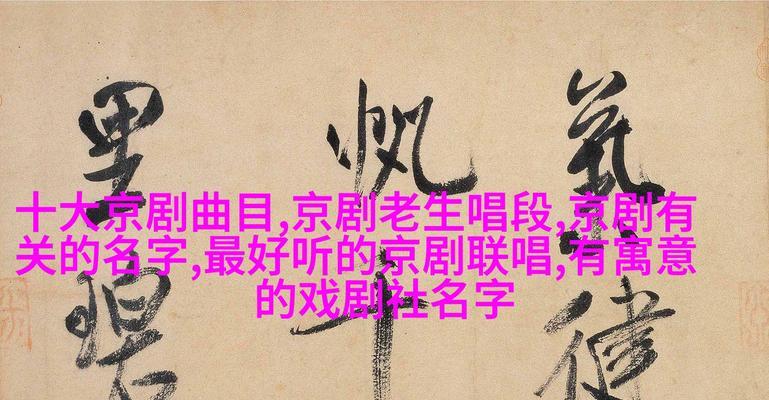 十大京剧曲目,京剧老生唱段,京剧有
关的名字,最好听的京剧联唱,有寓意
的戏剧社名字
氣健
帆千
里碧